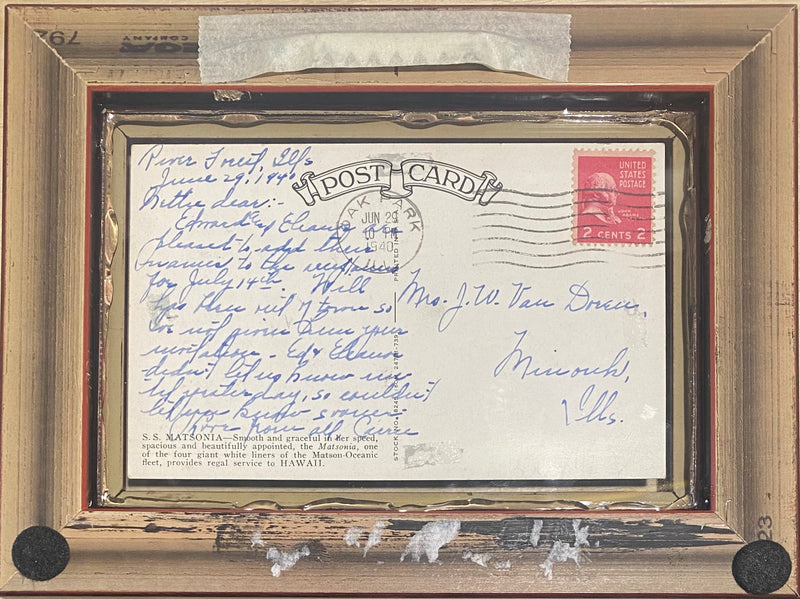 792
COMPANY
River Forest, Ills
June 29, 1940
Bettye dear:-
Edward & Eleanor
pleased to add their
names to the
for July 14th. Will
town so
do not your
invitation - Ed & Eleanor
didn't let us know un-
til yesterday, so couldn't
let you know sooner
Love from all
POST CARD
OAK PARK
JUN 29
10 PM
1940
ILL.
UNITED
STATES
POSTAGE
JOHN ADAMS
2 CENTS 2
Mrs. J. W. Van Doren,
Minonk,
Ills.
PRINTED IN
STOCK NO.
S.S. MATSONIA—Smooth and graceful in her speed,
spacious and beautifully appointed, the Matsonia, one
of the four giant white liners of the Matson-Oceanic
fleet, provides regal service to HAWAII.
23